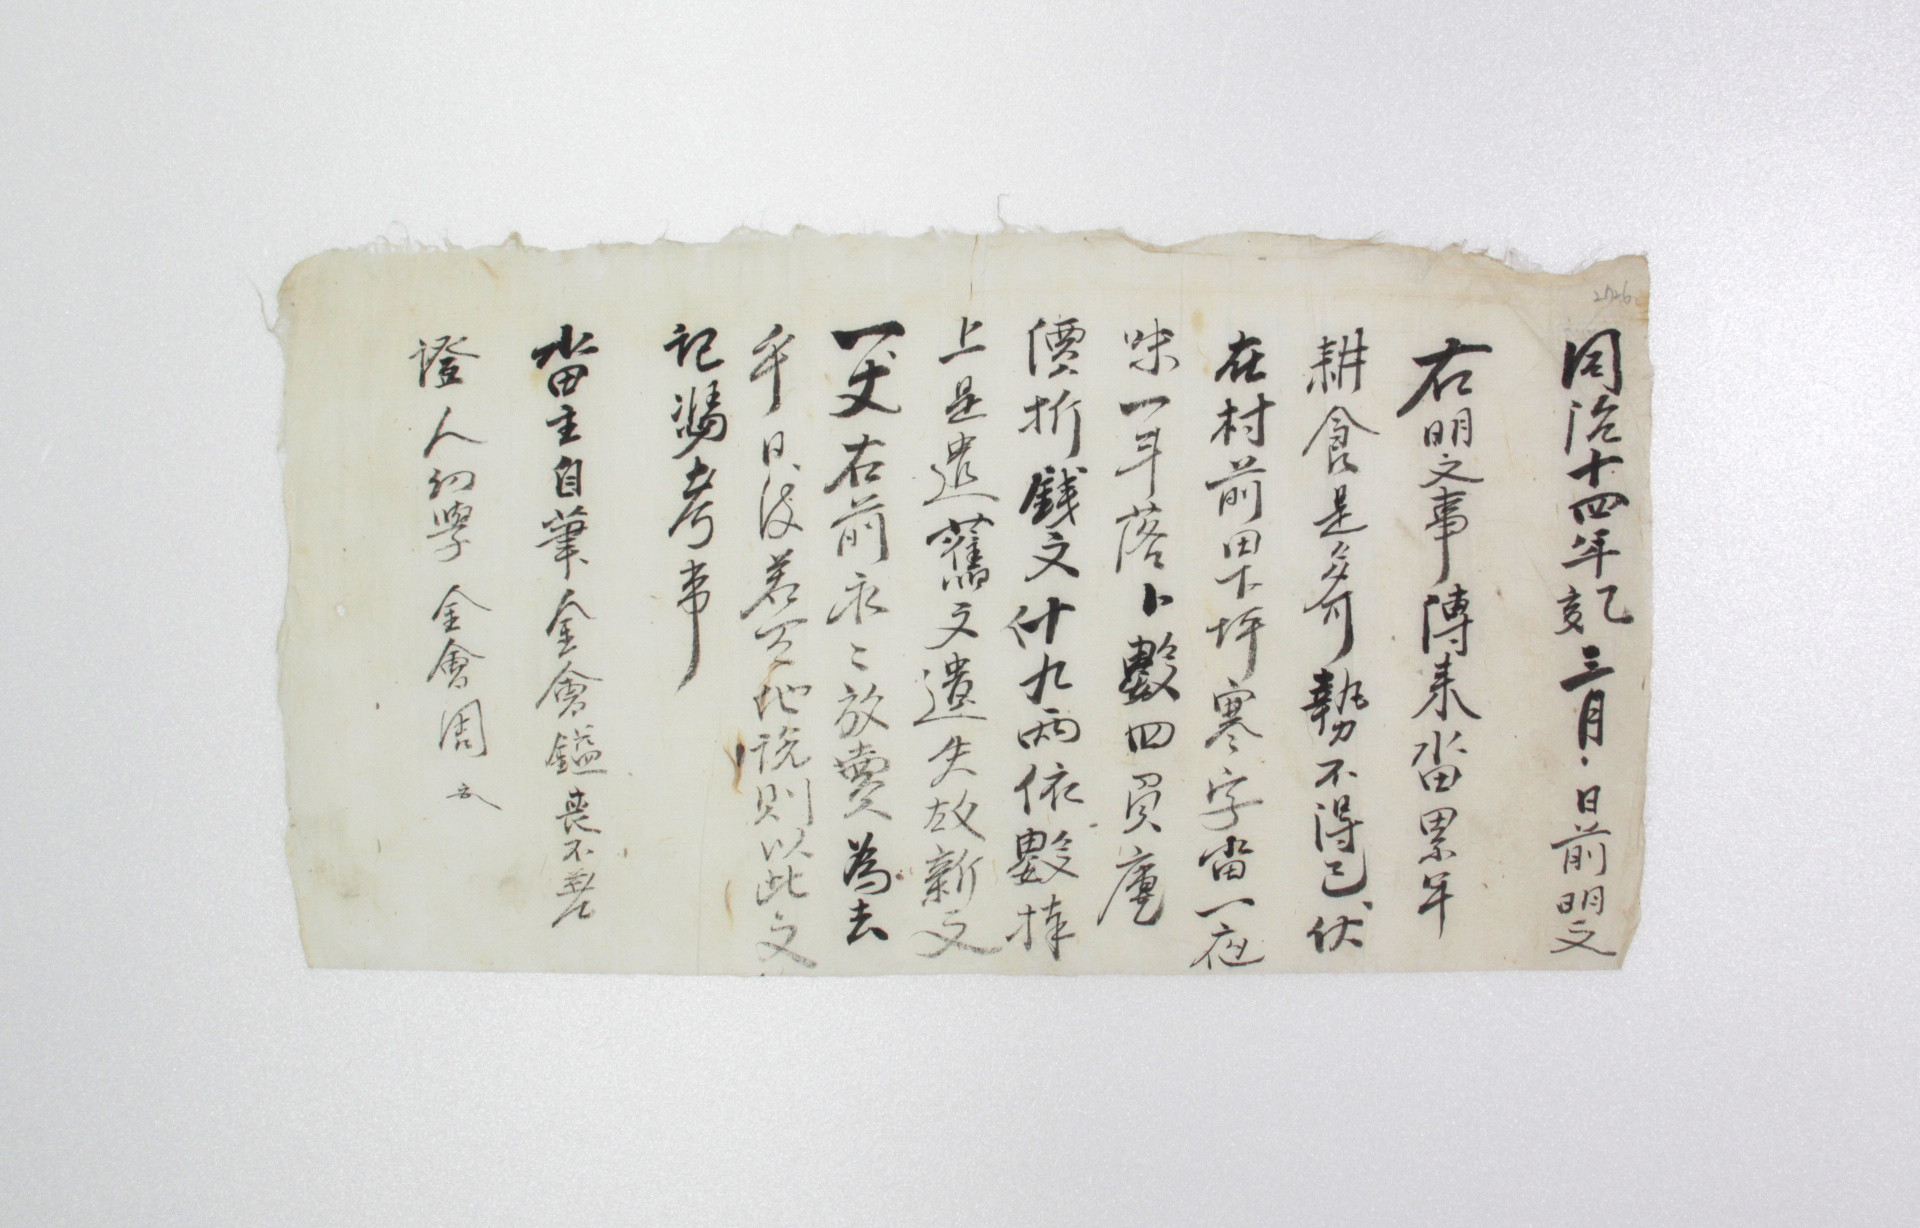 同治十四年乙亥三月 日前明文
右明文事傳來畓累年
耕食是多可勢不得已伏
在村前田下坪寒字畓一夜
味一斗落卜數四負庫
價折錢文什九兩依數捧
上是遣舊文遺失故新文
一丈右前永々放賣為去
乎日後若有他說則以此文
記憑考事
畓主自筆金會鎰喪不着
證人幼學金會周